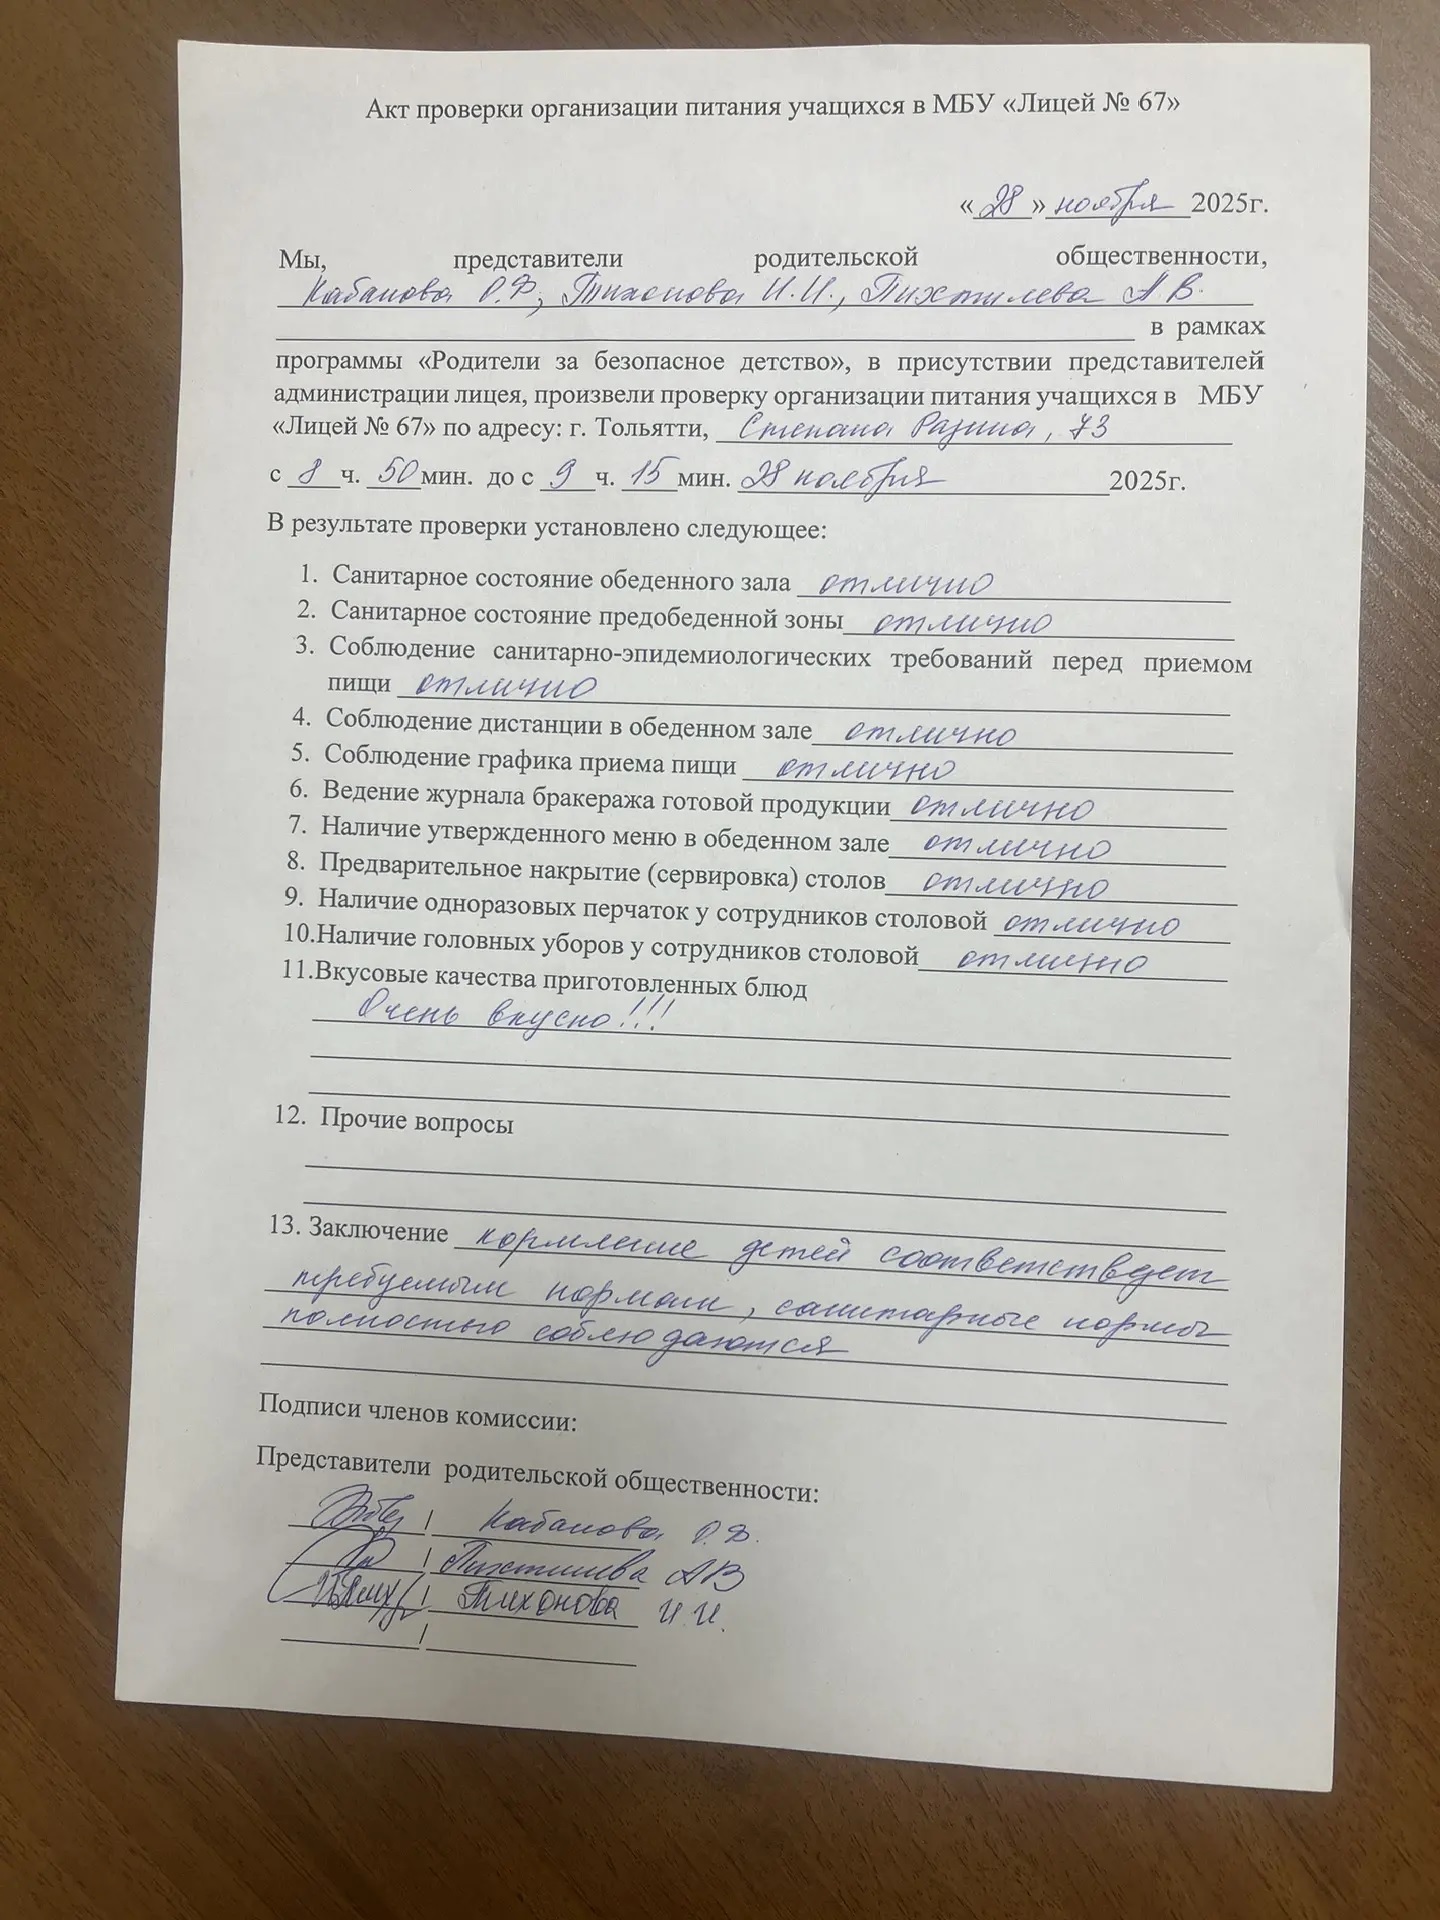 Акт проверки организации питания учащихся в МБУ «Лицей № 67»
« 28 » ноября 2025г.
Мы, представители родительской общественности,
Кабанова О.Ф., Тихонова И.И., Пихтилева А.В.
в рамках
программы «Родители за безопасное детство», в присутствии представителей
администрации лицея, произвели проверку организации питания учащихся в МБУ
«Лицей № 67» по адресу: г. Тольятти, Степана Разина, 73
с 8 ч. 50 мин. до с 9 ч. 15 мин. 28 ноября 2025г.
В результате проверки установлено следующее:
1. Санитарное состояние обеденного зала отлично
2. Санитарное состояние предобеденной зоны отлично
3. Соблюдение санитарно-эпидемиологических требований перед приемом
пищи отлично
4. Соблюдение дистанции в обеденном зале отлично
5. Соблюдение графика приема пищи отлично
6. Ведение журнала бракеража готовой продукции отлично
7. Наличие утвержденного меню в обеденном зале отлично
8. Предварительное накрытие (сервировка) столов отлично
9. Наличие одноразовых перчаток у сотрудников столовой отлично
10.Наличие головных уборов у сотрудников столовой отлично
11.Вкусовые качества приготовленных блюд
Очень вкусно!!!
12. Прочие вопросы
13. Заключение кормление детей соответствует
требуемым нормам, санитарные нормы
полностью соблюдаются
Подписи членов комиссии:
Представители родительской общественности:
/ Кабанова О.Ф.
/ Пихтилева АВ
/ Тихонова И.И.
/